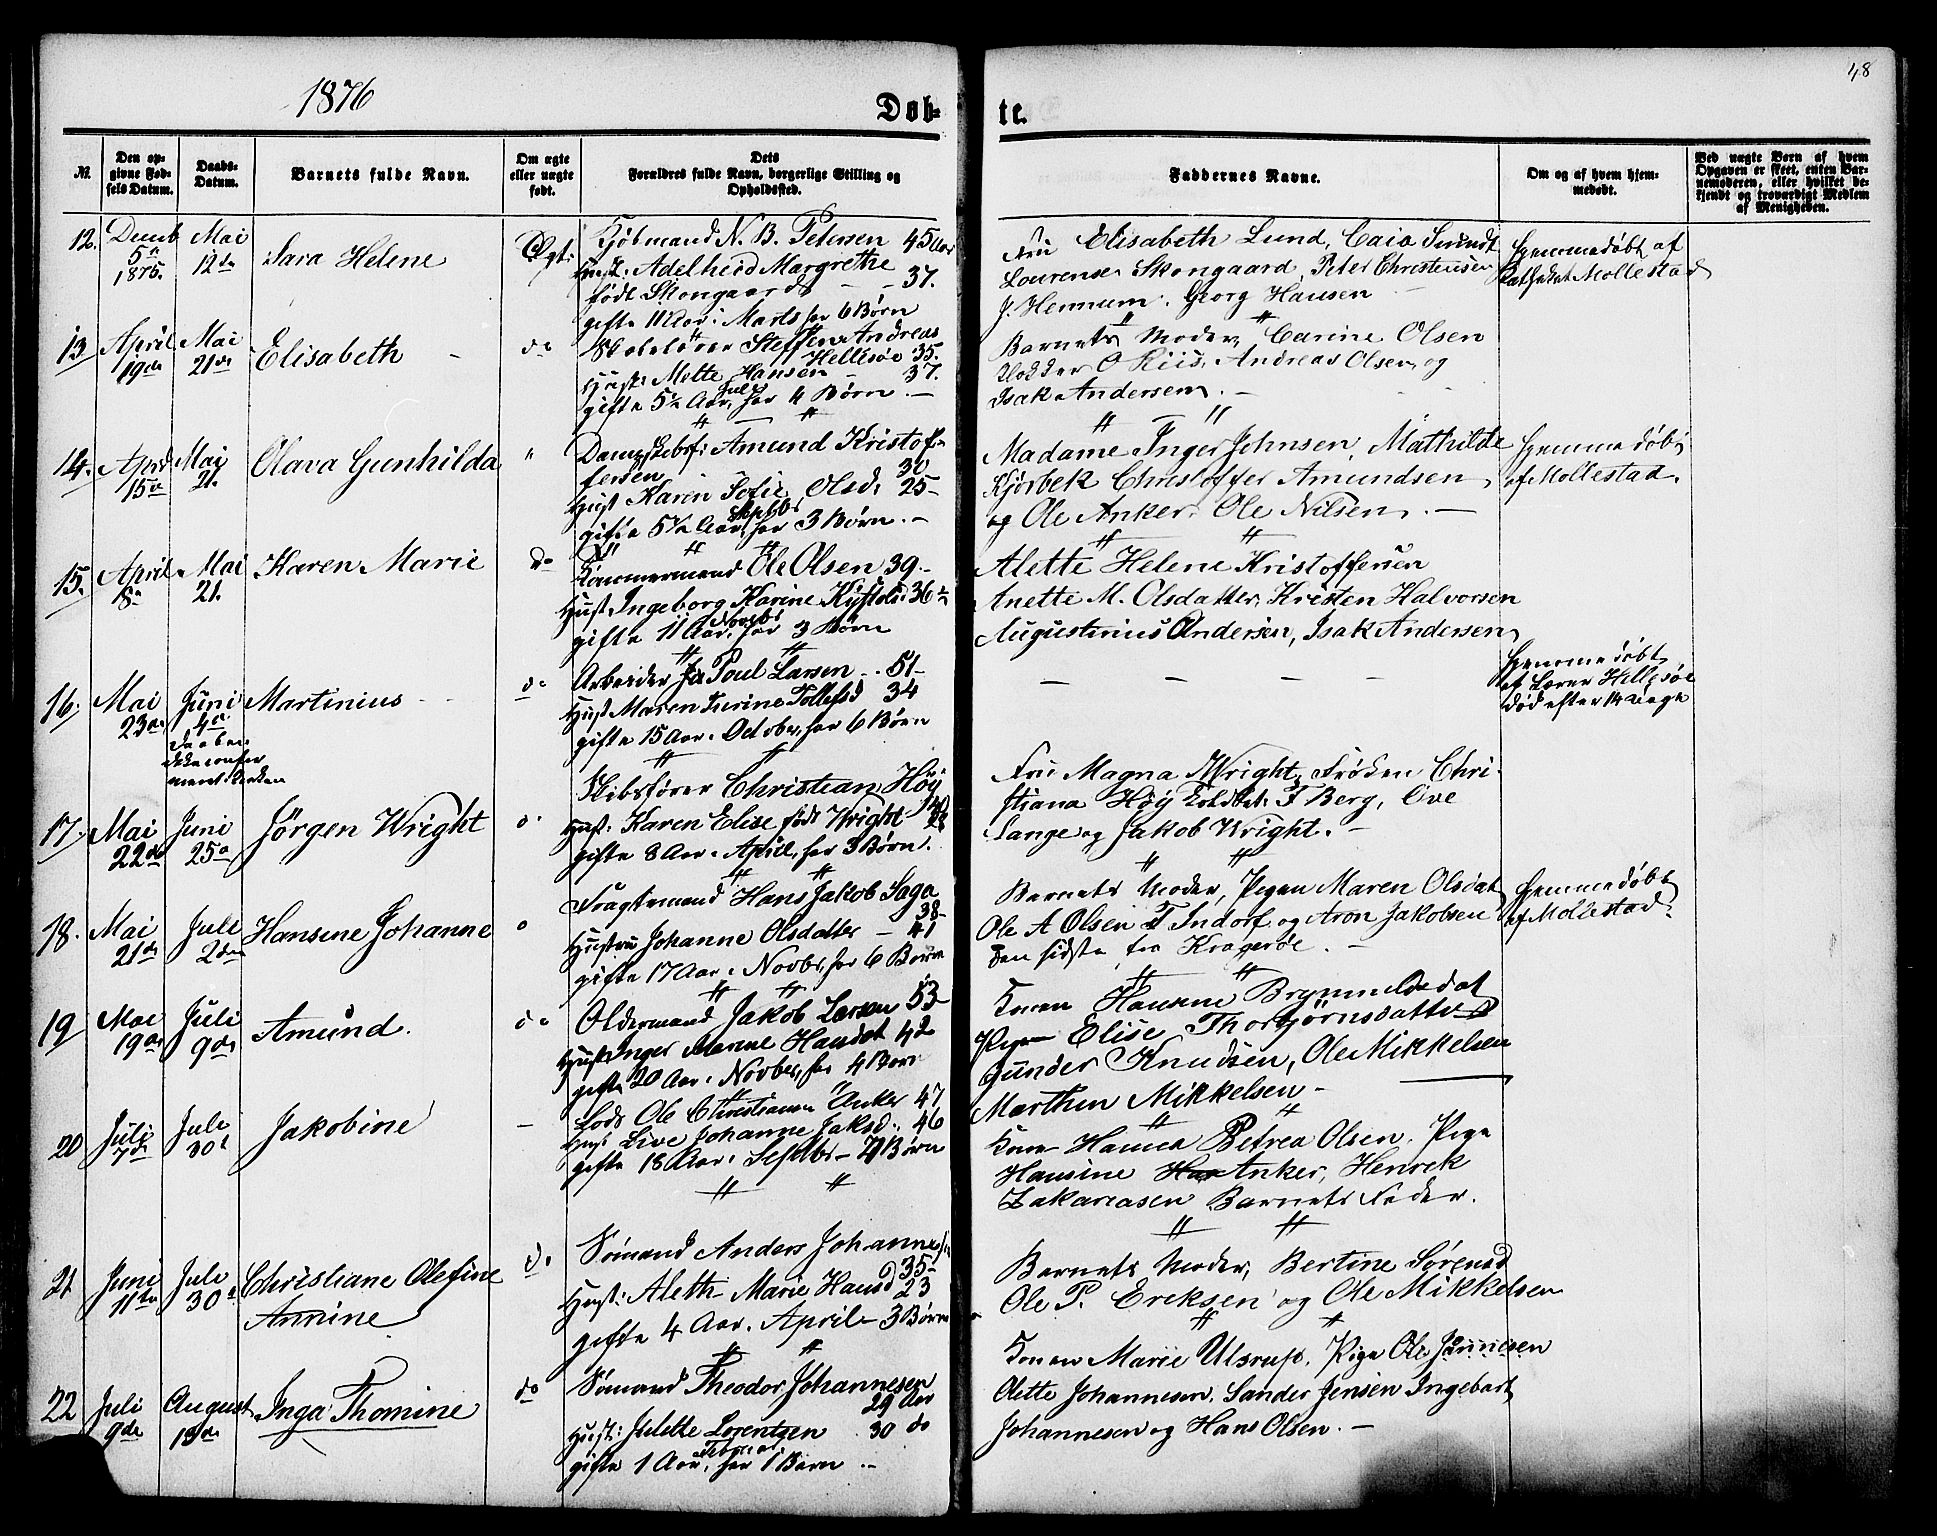 48
1876
Døb-
te.
No.
Den op-
givne Fød-
sels Datum.
Daabs-
Datum.
Barnets fulde Navn.
Om ægte
eller uægte
født.
Dets
Forældres fulde Navn, borgerlige Stilling og
Opholdssted.
Faddernes Navne.
Om og af hvem hjem-
medøbt.
Ved uægte Børn af hvem
Opgaven er skeet, enten Bar-
nemoderen, eller hvilket be-
kjendt og troværdigt Medlem
af Menigheden.
12.
5te
1875.
Mai
12te
Sara Helene
Ægt:
Kjøbmand N. B. Petersen 45 Aar
Hust: Adelheid Margrethe
født Skongaard - - 37.
gifte 11 Aar i Marts har 6 Børn
Fru Elisabeth Lund, Caia
Lourense Skongaard, Peter Christensen
J. Hermum. Georg Hansen
Hjemmedøbt af
Mollestad
13
April
19de
Mai
21de
Elisabeth
do
Steffen Andreas
Hellesøe 35.
Hust: Mette Hansen 37.
gifte 5½ Aar, har 4 Børn. -
Barnets Moder, Carine Olsen
O Riis, Andreas Olsen, og
Isak Andersen. -
14.
April
15de
Mai
21.
Olava Gunhilda
"
Dampskibsf: Amund Kristof-
fersen 30
Hust Karen Sofie Olsd: 25-
gifte 5½ Aar, Septbr har 3 Børn. -
Madame Inger Johnsen, Mathilde
Kjørbek Christoffer Amundsen
og Ole Anker. Ole Nilsen. -
Hjemmedøbt
af Mollestad.
15.
April
18de
Mai
21.
Karen Marie
do
Tømmermand Ole Olsen 39.-
Hust Ingeborg Karine 36½
gifte 11 Aar, Novbr har 3 Børn
Alette Helene Kristoffersen
Anette M. Olsdatter, Kristen Halvorsen
Augustinius Andersen, Isak Andersen
16.
Mai
23de
Juni
4de
Martinius
do
Arbeider Poul Larsen - 51-
Hust Maren Turine Tollefsd 34
gifte 15 Aar i October, har 6 Børn
- - - -
Hjemmedøbt
af Lærer Hellesøe
død efter 14 Dage
17.
Mai
22de
Juni
25de
Jörgen Wright
do
Skibsfører Christian Höy
40
Hust: Karen Elise født Wright
gifte 8 Aar i April, har 3 Børn.
Fru Magna Wright, Frøken Chri-
stiana Höy F Berg, Ove
Lange og Jakob Wright. -
18.
Mai
21de
Juli
2den
Hansine Johanne
do
Fragtemand Hans Jakob Saga
38-
Hustru Johanne Olsdatter - 41
gifte 17 Aar i Novbr, har 6 Børn
Barnets Moder, Pigen Maren Olsdat
Ole A Olsen T Indorf og Aron Jakobsen
den sidste fra Kragerøe. -
Hjemmedøbt
af Mollestad.
19
Mai
19de
Juli
9de
Amund.
do
Oldermand Jakob Larsen 53-
Hust Inger Marine Hansdat 42
gifte 20 Aar i Novber, har 4 Børn
Konen Hansine Brynnelsdat
Pigen Elise Thorbjörnsdatter
Gunder Knudsen, Ole Mikkelsen
Marthin Mikkelsen -
20
Juli
7de
Juli
30te
Jakobine
-
Lods Ole Christiansen Anker 47
Hust Live Johanne Jaksd: 46
gifte 18 Aar i Septbr - 7 Børn
Kone Hanna Petrea Olsen. Pige
Hansine Anker, Henrek
Zakariasen Barnets Fader.
21
Juni
11te
Juli
30te
Christiane Olefine
Annine
do
Sømand Anders Johannesen
35-
Hust: Aleth Marie Hansd 23
gifte 4 Aar i April - 3 Børn
Barnets Moder, Bertine Sørensd
Ole P. Ereksen og Ole Mikkelsen
22
Juli
9de
August
13de
Inga Thomine
do
Sømand Theodor Johannesen
29 Aar
Hust: Julette Lorentzen 30 do
gifte 1 Aar, Februar har 1 Børn -
Konen Marie Ulsrup. Pige
Olette Johannesen. Sander Jensen Ingebart
Johannesen og Hans Olsen. -